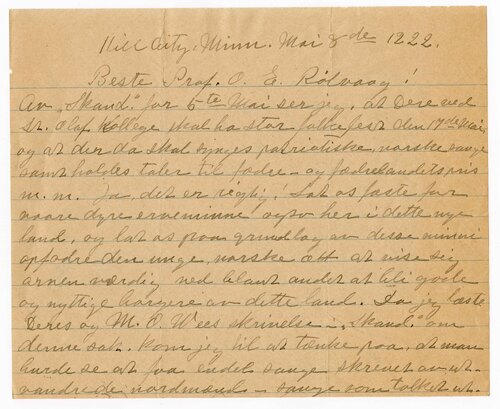 Hill City, Minn. Mai 8de 1922.
Beste Prof. O. E. Rølvaag!
Av „Skand." for 5te Mai ser jeg, at Dere ved
St. Olaf Kollege skal ha stor folkefest den 17de Mai,
og at der da skal synges patriotiske, norske sange
samt holdes taler til fædre- og fædrelandets pris
m. m. Ja, det er rigtig! Lat os feste for
vaare dyre arveminne ogso her i dette nye
land, og lat os paa grundlag av disse minni
opfodre den unge, norske ætt at vise seg
arven værdig ved blant andet at bli gode
og nyttige borgere av dette land. Da jeg læste
Deres og M. O. Wees skrivelse i „Skand." om
denne sak, kom jeg til at tænke paa, at man
burde se at faa endel sange skrevet av ut-
vandrede nordmænd - sange som tolket ut-